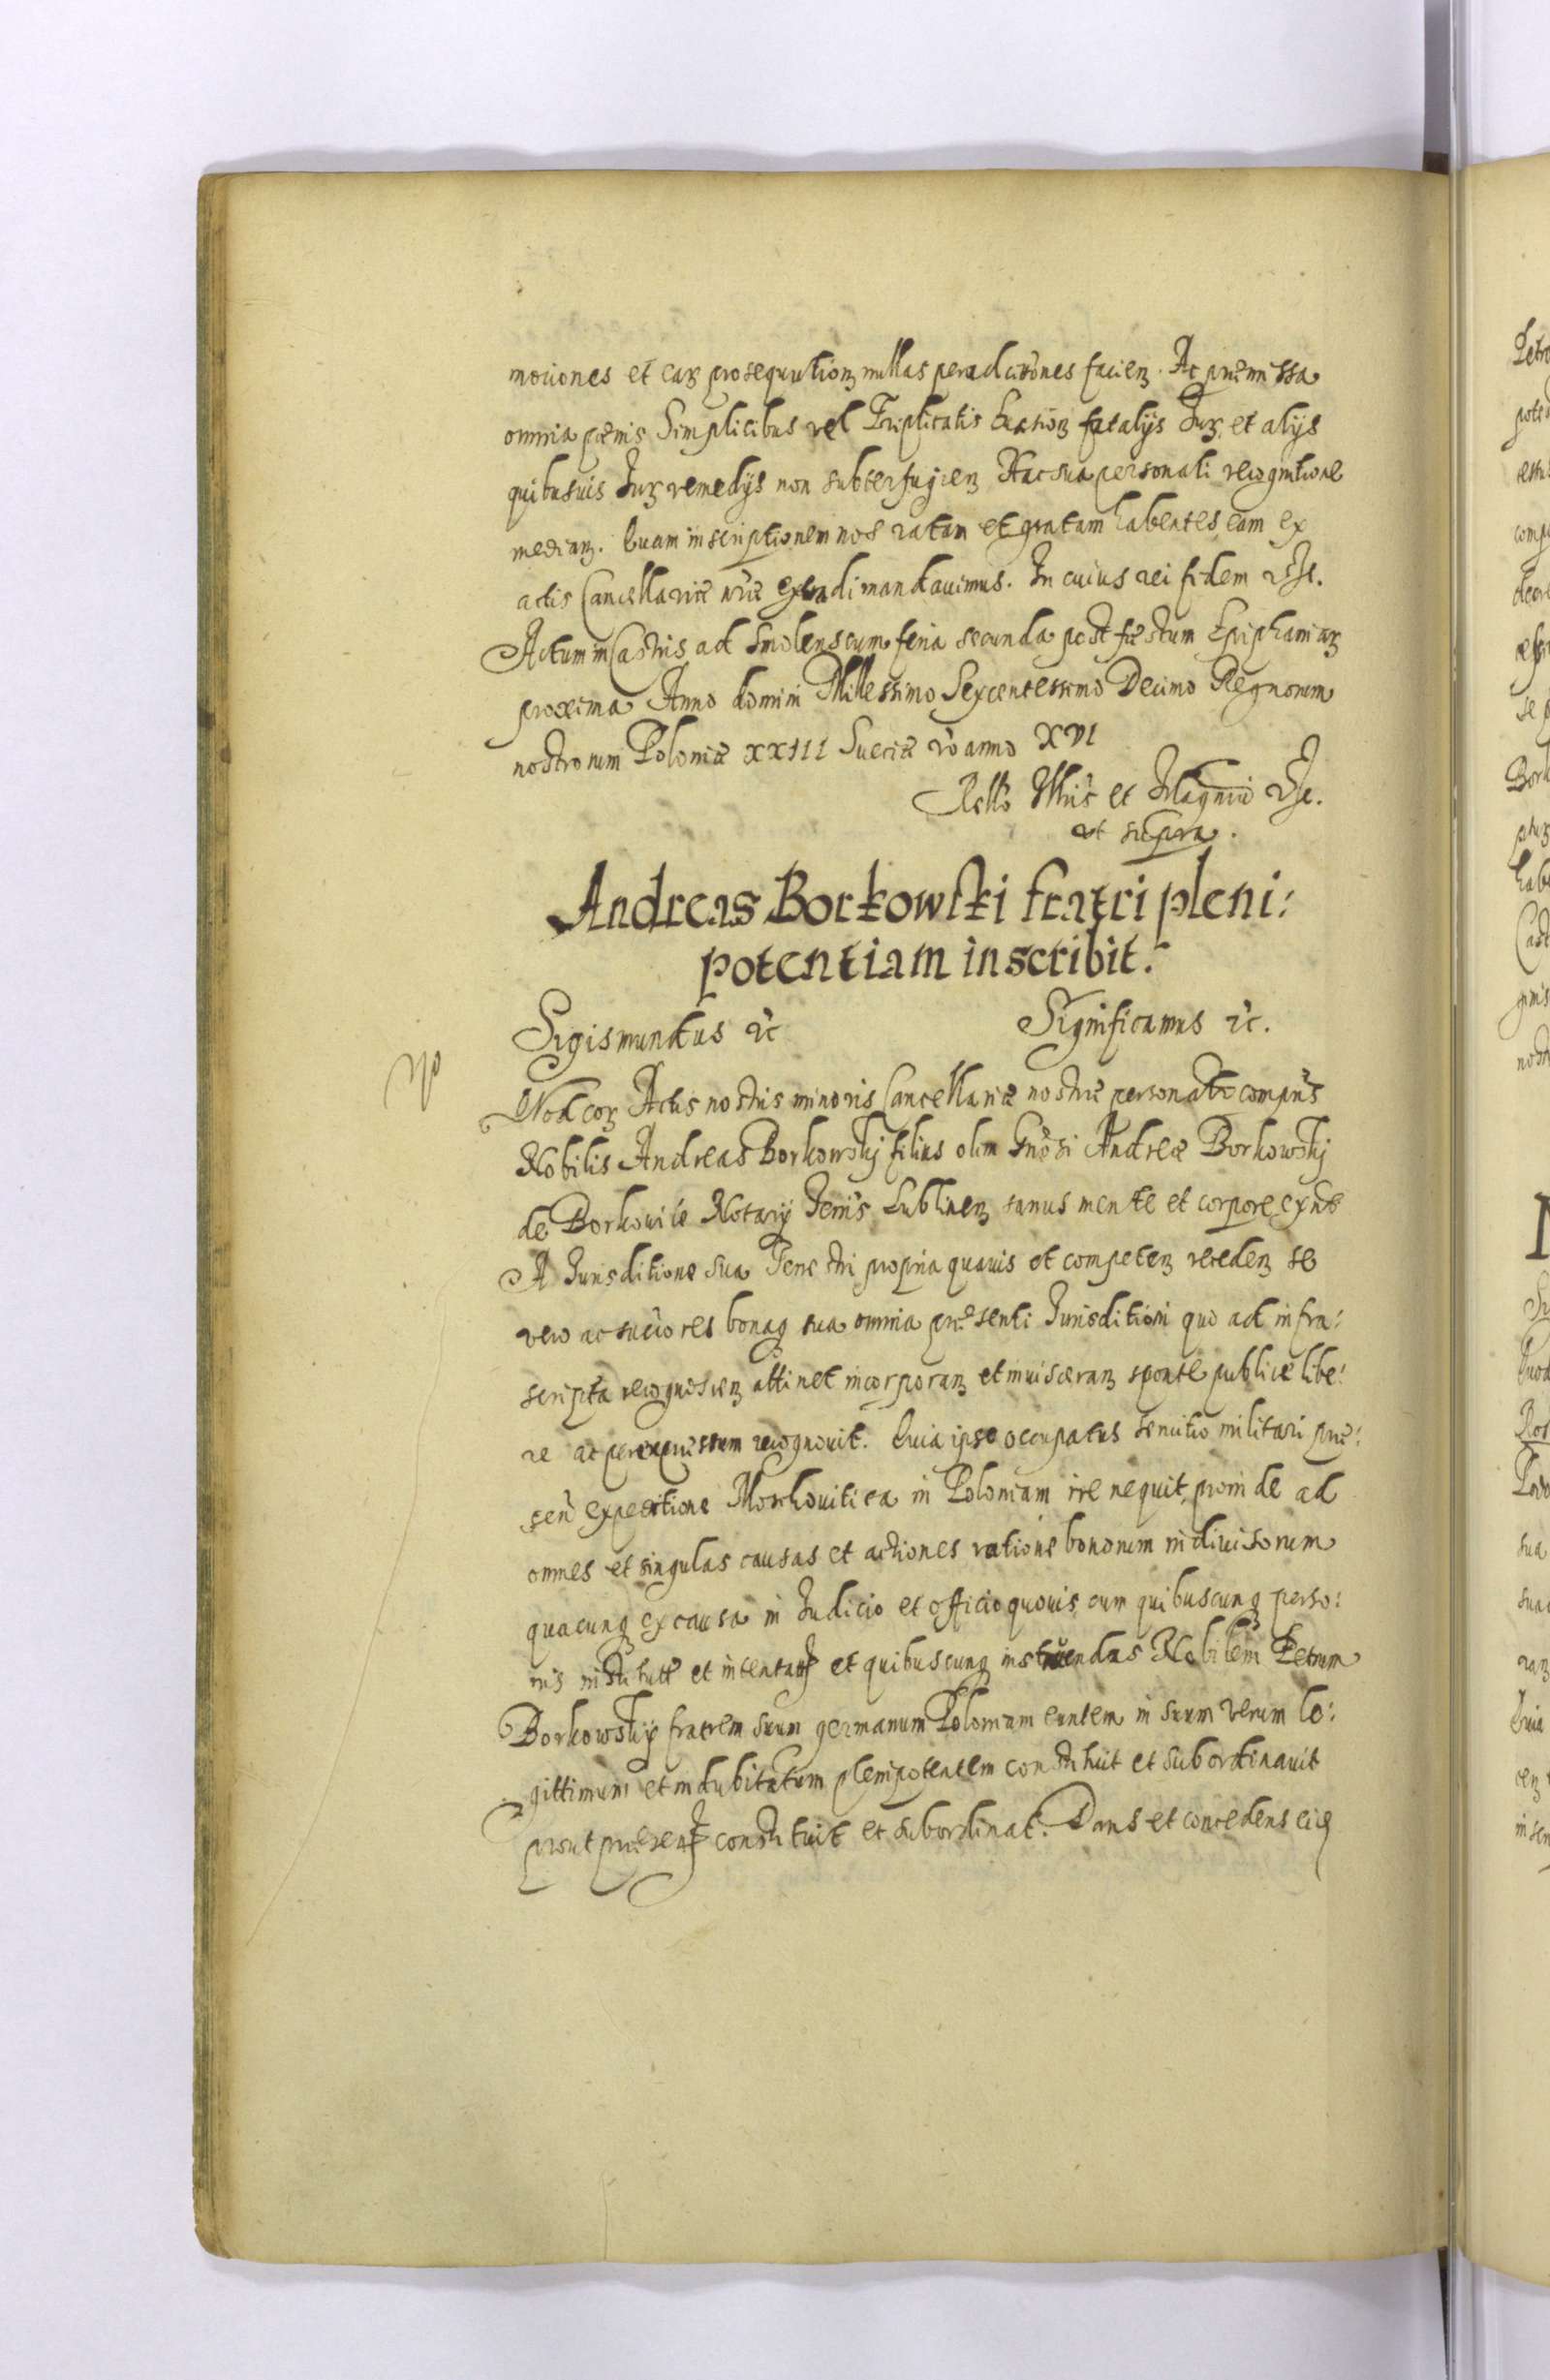 motiones et eaꝝ prosequutionꝫ nullas peradictiones facienꝫ. Ac præmissa
omnia pœnis Simplicibus vel Triplicatis fatalijs Jurꝫ et alijs
quibusuis Jurꝫ remedijs non subterfugienꝫ Hac sua personali recognitione
medianꝫ. Quam inscriptionem nos ratam et gratam habentes, eam ex
actis Cancellariæ nr̃æ extradi mandauimus. In cuius rei fidem etc.
Actum in Castris ad Smolenscum feria secunda post fæstum Epiphaniaꝝ
proxima Anno domini Millessimo Sexcentessimo Decimo Regnorum
nostrorum Poloniæ XXIII Sueciæ v̀o anno XVI
Rel̃lo Ill̃ris et Magn̄ci etc.
ut supra.
Andreas Borkowski fratri pleni:
potentiam inscribit.
Sigismundus ꝛc Significamus ꝛc.
Quod coꝝ Actis nostris minoris Cancellariæ nostræ personalr̃ compn̄s
Nobilis Andreas Borkowskj filius olim Gn̄osi Andreæ Borkowskj
de Borkowice Notarij Terrīs Lublinenꝫ sanus mente et corpore exn̄s
A Jurisditione sua Terrestri propria quauis et competenꝫ recedenꝫ se
vero ac succ̄ores bonaqꝫ sua omnia præsenti Jurisditioni quo ad infra:
scripta recognoscenꝫ attinet incorporanꝫ et inuisceranꝫ sponte publice libe:
re ac per expressum recognouit. Quia ipse occupatus seruitio militari præ:
sen̄ expeditione Moschouitica in Poloniam ire nequit, proinde ad
omnes et singulas causas et actiones ratione bonorum indiuisorum
quacunqꝫ ex causa in Judicio et officio quouis, cum quibuscunqꝫ perso:
nis institutas et intentatas et quibuscunqꝫ instituendas Nobilem Petrum
Borkowskij fratrem suum germanum Poloniam euntem in suum verum le:
gittimum et indubitatum plenipotentem constituit et subordinauit
prout præsentꝭ constituit et subordinat. Dans et concedens eidꝫ